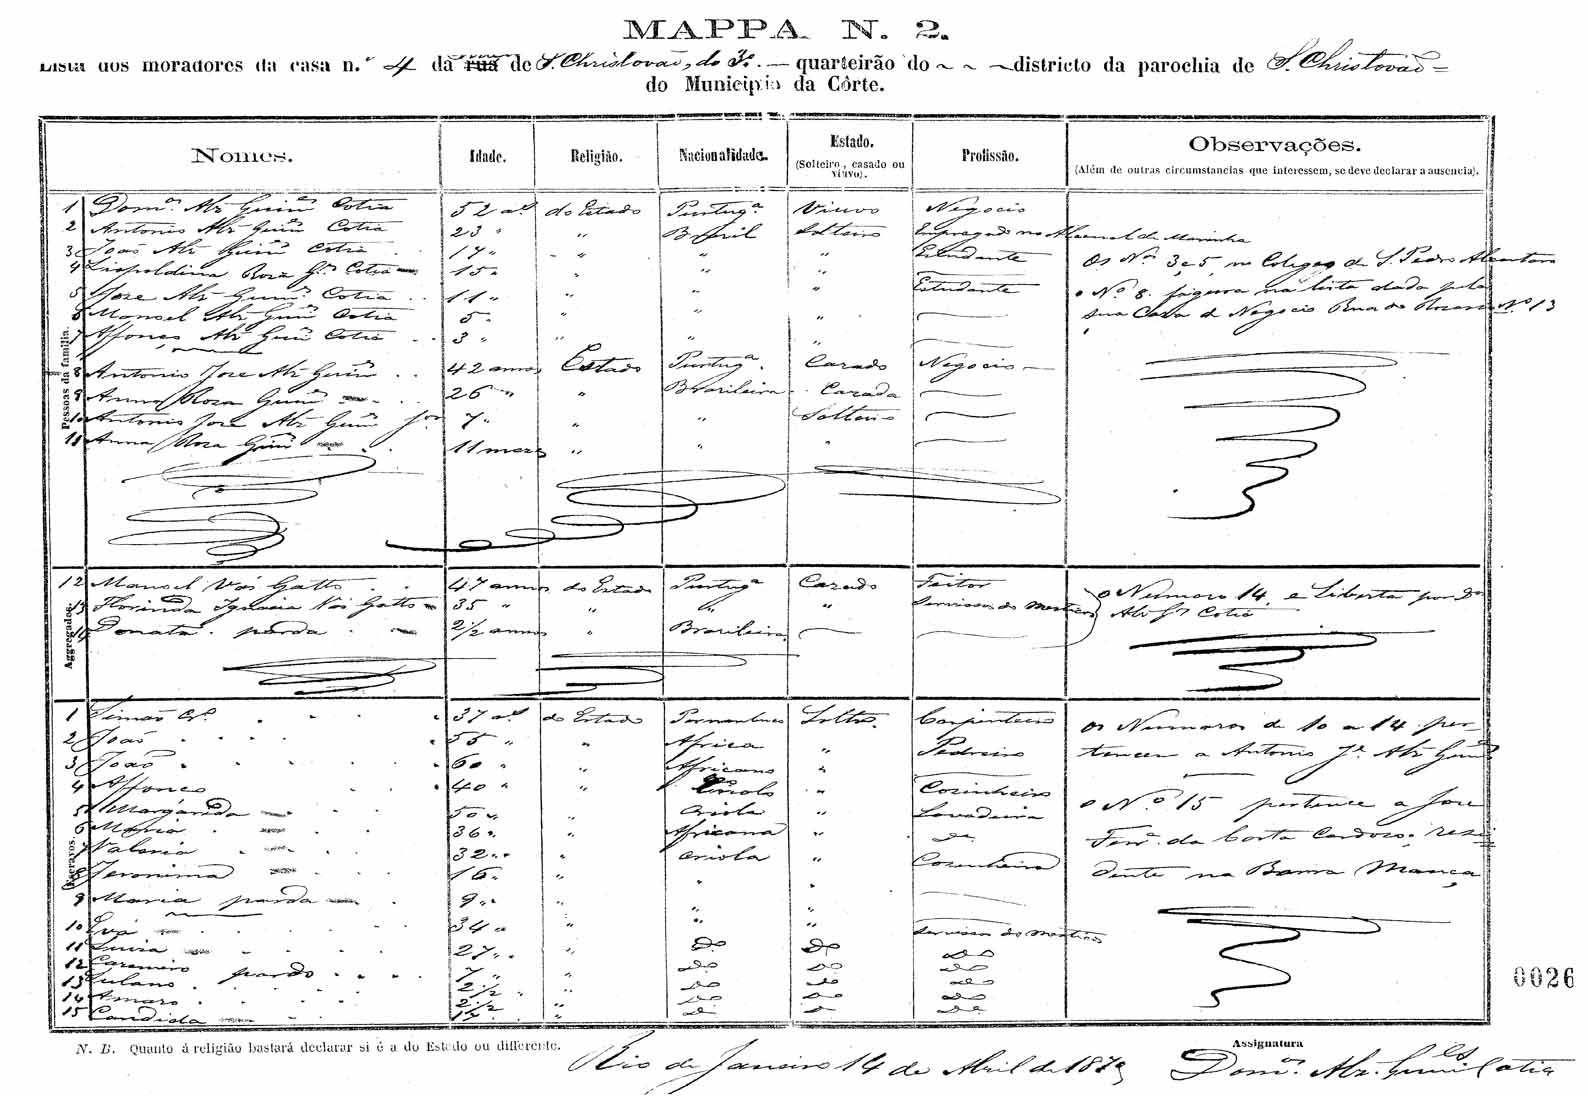 MAPPA N. 2.
Lista dos moradores da casa n.º 4 da rua de S. Christovão, do 3.º quarteirão do districto da parochia de S. Christovão
do Municipio da Côrte.
Nomes. Idade. Religião. Nacionalidade. Estado. (Solteiro, casado ou viuvo). Profissão. Observações. (Além de outras circumstancias que interessem, se deve declarar a ausencia).
Pessoas da familia.
1 Dom.os Alz Guim.es Cotia 52 a.s do Estado Portug.a Viuvo Negocio
2 Antonio Alz Guim.es Cotia 23 " " Brasil Solteiro Empregado no Arsenal de Marinha
3 João Alz Guim.es Cotia 17 " " " " Estudante
4 Leopoldina Rosa G.es Cotia 15 " " " "
5 Jose Alz Guim.es Cotia 11 " " " " Estudante
6 Manoel Alz Guim.es Cotia 5 " " " "
7 Affonço Alz Guim.es Cotia 3 " " " "
8 Antonio Jose Alz Guim.es 42 annos Estado Portug.a Cazado Negocio
9 Anna Roza Guim.es 26 " " Brasileira Cazada
10 Antonio Jose Alz Guim.es J.or 7 " " " Solteiro
11 Anna Roza Guim.es 11 mezes " " "
Os N.os 3 e 5, no Colegio de S. Pedro Alcantara
o N.º 8. figura na lista dada pela
sua Caza de Negocio Rua do Rozario N.º 13
Aggregados.
12 Manoel Vás Gatto 47 annos do Estado Portug.a Cazado Feitor
13 Florinda Ignacia Vás Gatto 35 " " " " Serviços domesticos
14 Donata parda 2 1/2 annos " Brasileira
o Numero 14 e Liberta por D.os
Alz G.es Cotia
Escravos.
1 Simão Cr.º 37 a.s do Estado Pernambuco Soltr.º Carpinteiro
2 João 55 " " Africa " Pedreiro
3 João 60 " " Africano "
4 Affonço 40 " " Criolo " Cosinheiro
5 Margarida 50 " " Criola " Lavadeira
6 Maria 36 " " Africana " do
7 Valeria 32 " " Criola " Cosinheira
8 Jeronima 16 " " "
9 Maria parda 9 " " " "
10 Eva 34 " " " " Serviços domesticos
11 Luiza 27 " " do do do
12 Cazemiro pardo 7 " " do do do
13 Juliano 2 1/2 " " do do do
14 Amaro 2 1/2 " do do do
15 Candida 17 " " do do do
Os Numeros de 10 a 14 per-
tencem a Antonio J.e Alz Guim.es
o N.º 15 pertence a Jose
Ferr.a da Costa Cardozo, resi-
dente na Barra Mança
0026
N. B. Quanto á religião bastará declarar si é a do Estado ou differente.
Rio de Janeiro 14 de Abril de 1870
Assignatura
Dom.os Alz. Guim.es Cotia